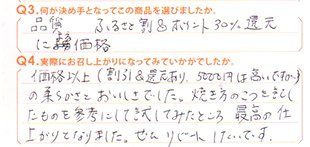 Q3.何が決め手となってこの商品を選びましたか。
品質 ふるさと割&ポイント30%還元
に 価格
Q4.実際にお召し上がりになってみていかがでしたか。
価格以上(割引&還元あり、5000円は安いですが)
の柔らかさとおいしさでした。焼き方のこつをきし
たものを参考にして試してみたところ 最高の仕
上がりとなりました。ぜひリピートしたいです。